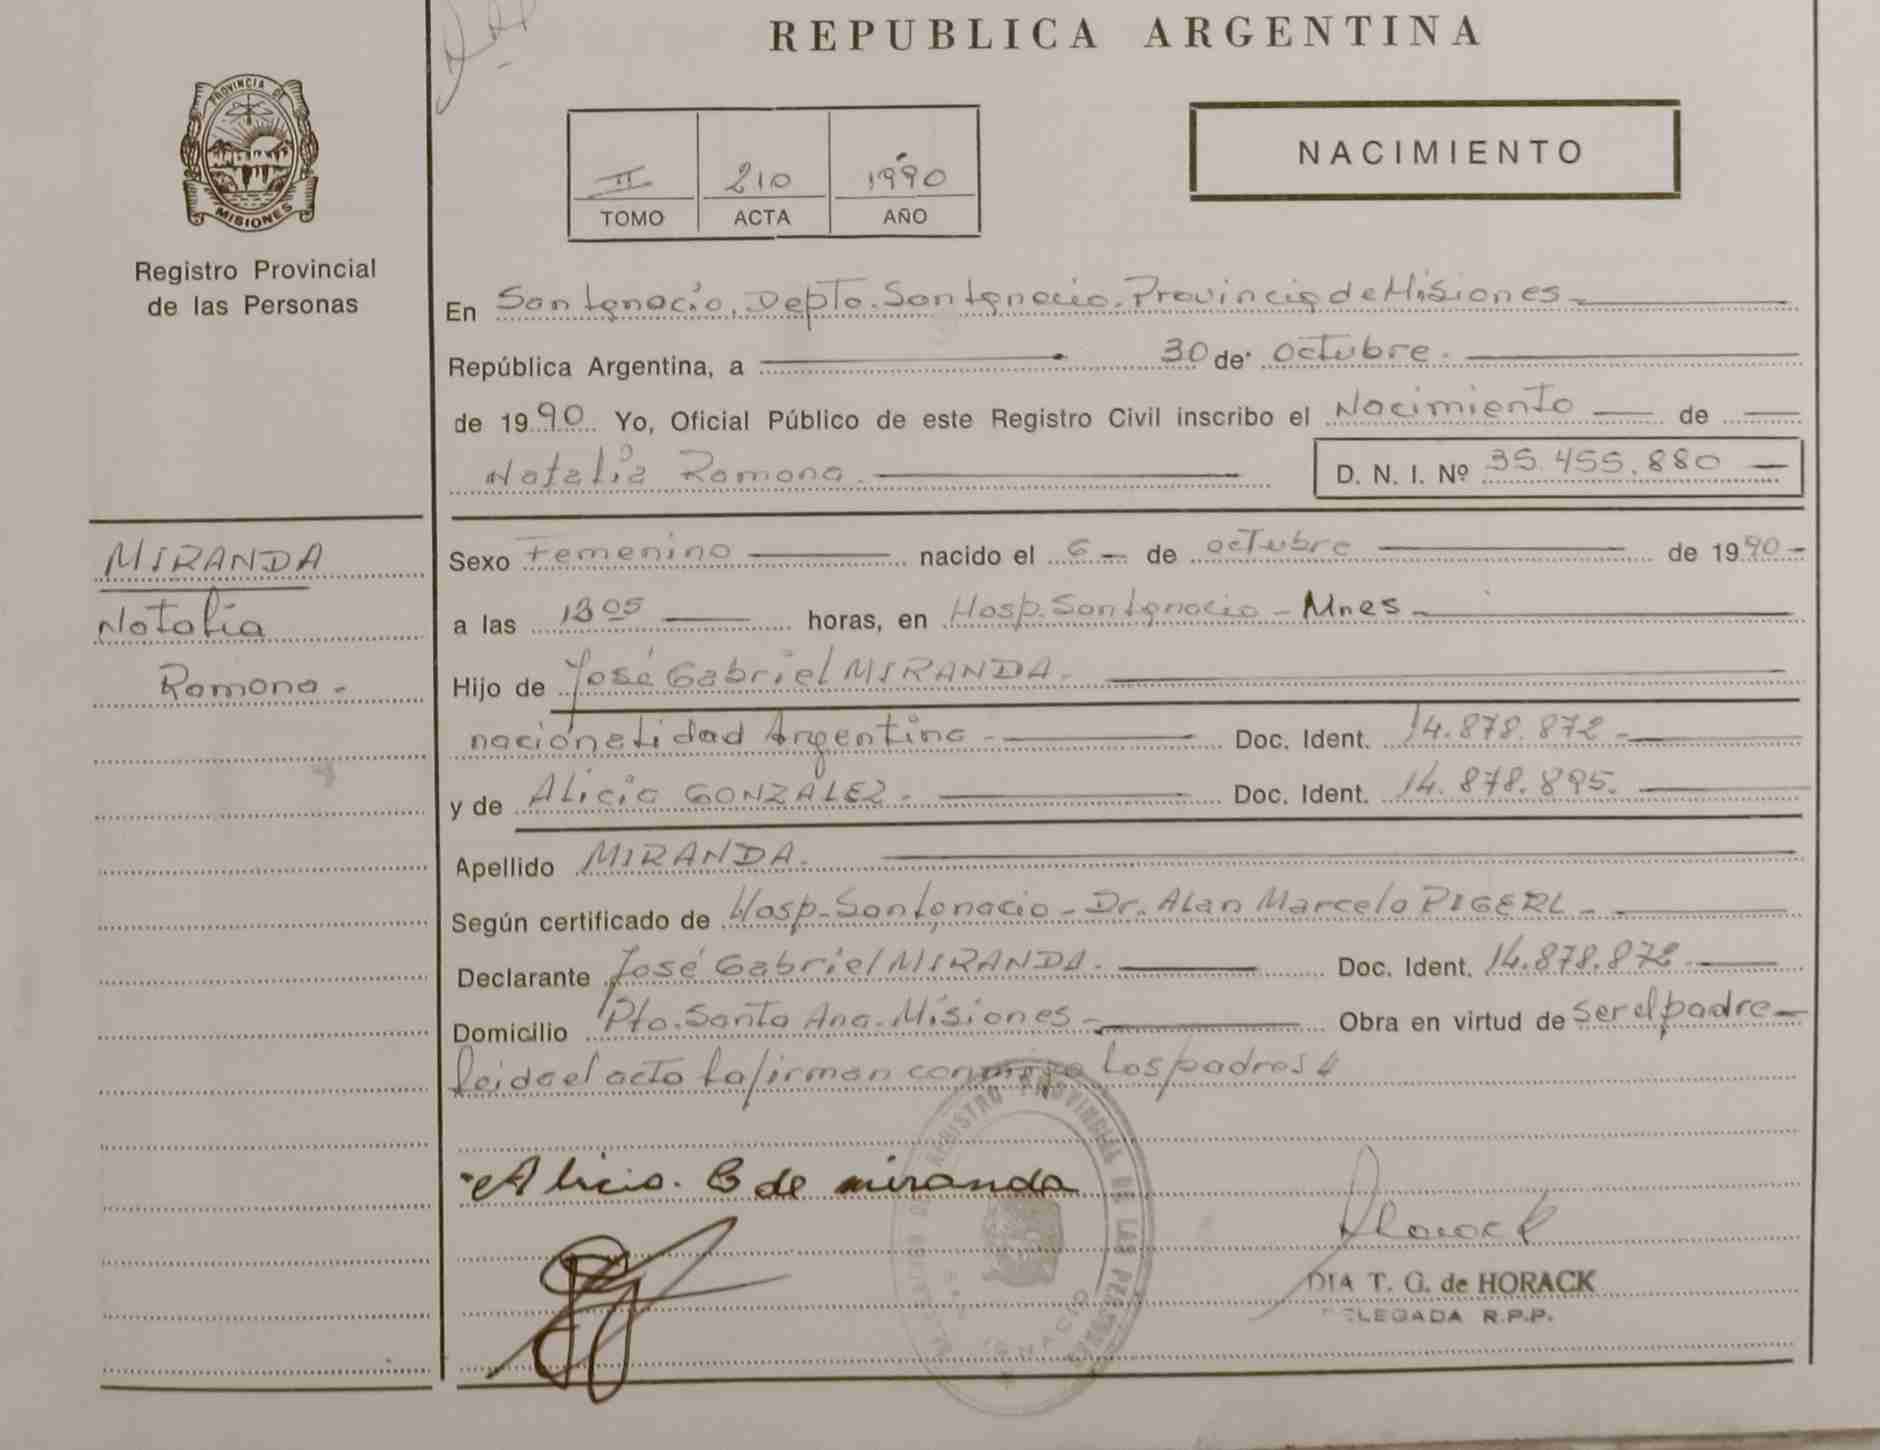 REPUBLICA ARGENTINA
PROVINCIA DE
MISIONES
Registro Provincial
de las Personas
II 210 1990
TOMO ACTA AÑO
NACIMIENTO
En San Ignacio, Depto. San Ignacio. Provincia de Misiones
República Argentina, a 30 de octubre.
de 1990 Yo, Oficial Público de este Registro Civil inscribo el Nacimiento de
Natalia Ramona. D. N. I. Nº 35.455.880
MIRANDA
Natalia
Ramona.-
Sexo Femenino nacido el 6 de octubre de 1990-
a las 13 05 horas, en Hosp. San Ignacio - Mnes -
Hijo de José Gabriel MIRANDA.
nacionalidad Argentina - Doc. Ident. 14.878.872 -
y de Alicia GONZALEZ - Doc. Ident. 14.878.895.
Apellido MIRANDA.
Según certificado de Hosp-San Ignacio - Dr. Alan Marcelo PIGERL -
Declarante José Gabriel MIRANDA. Doc. Ident. 14.878.872
Domicilio Pto. Santa Ana. Misiones - Obra en virtud de Ser el padre
leida el acto la firman conmigo los padres
Alicia. G de miranda
REGISTRO PROVINCIAL DE LAS PERSONAS
IGNACIO
T. G. de HORACK
R.P.P.